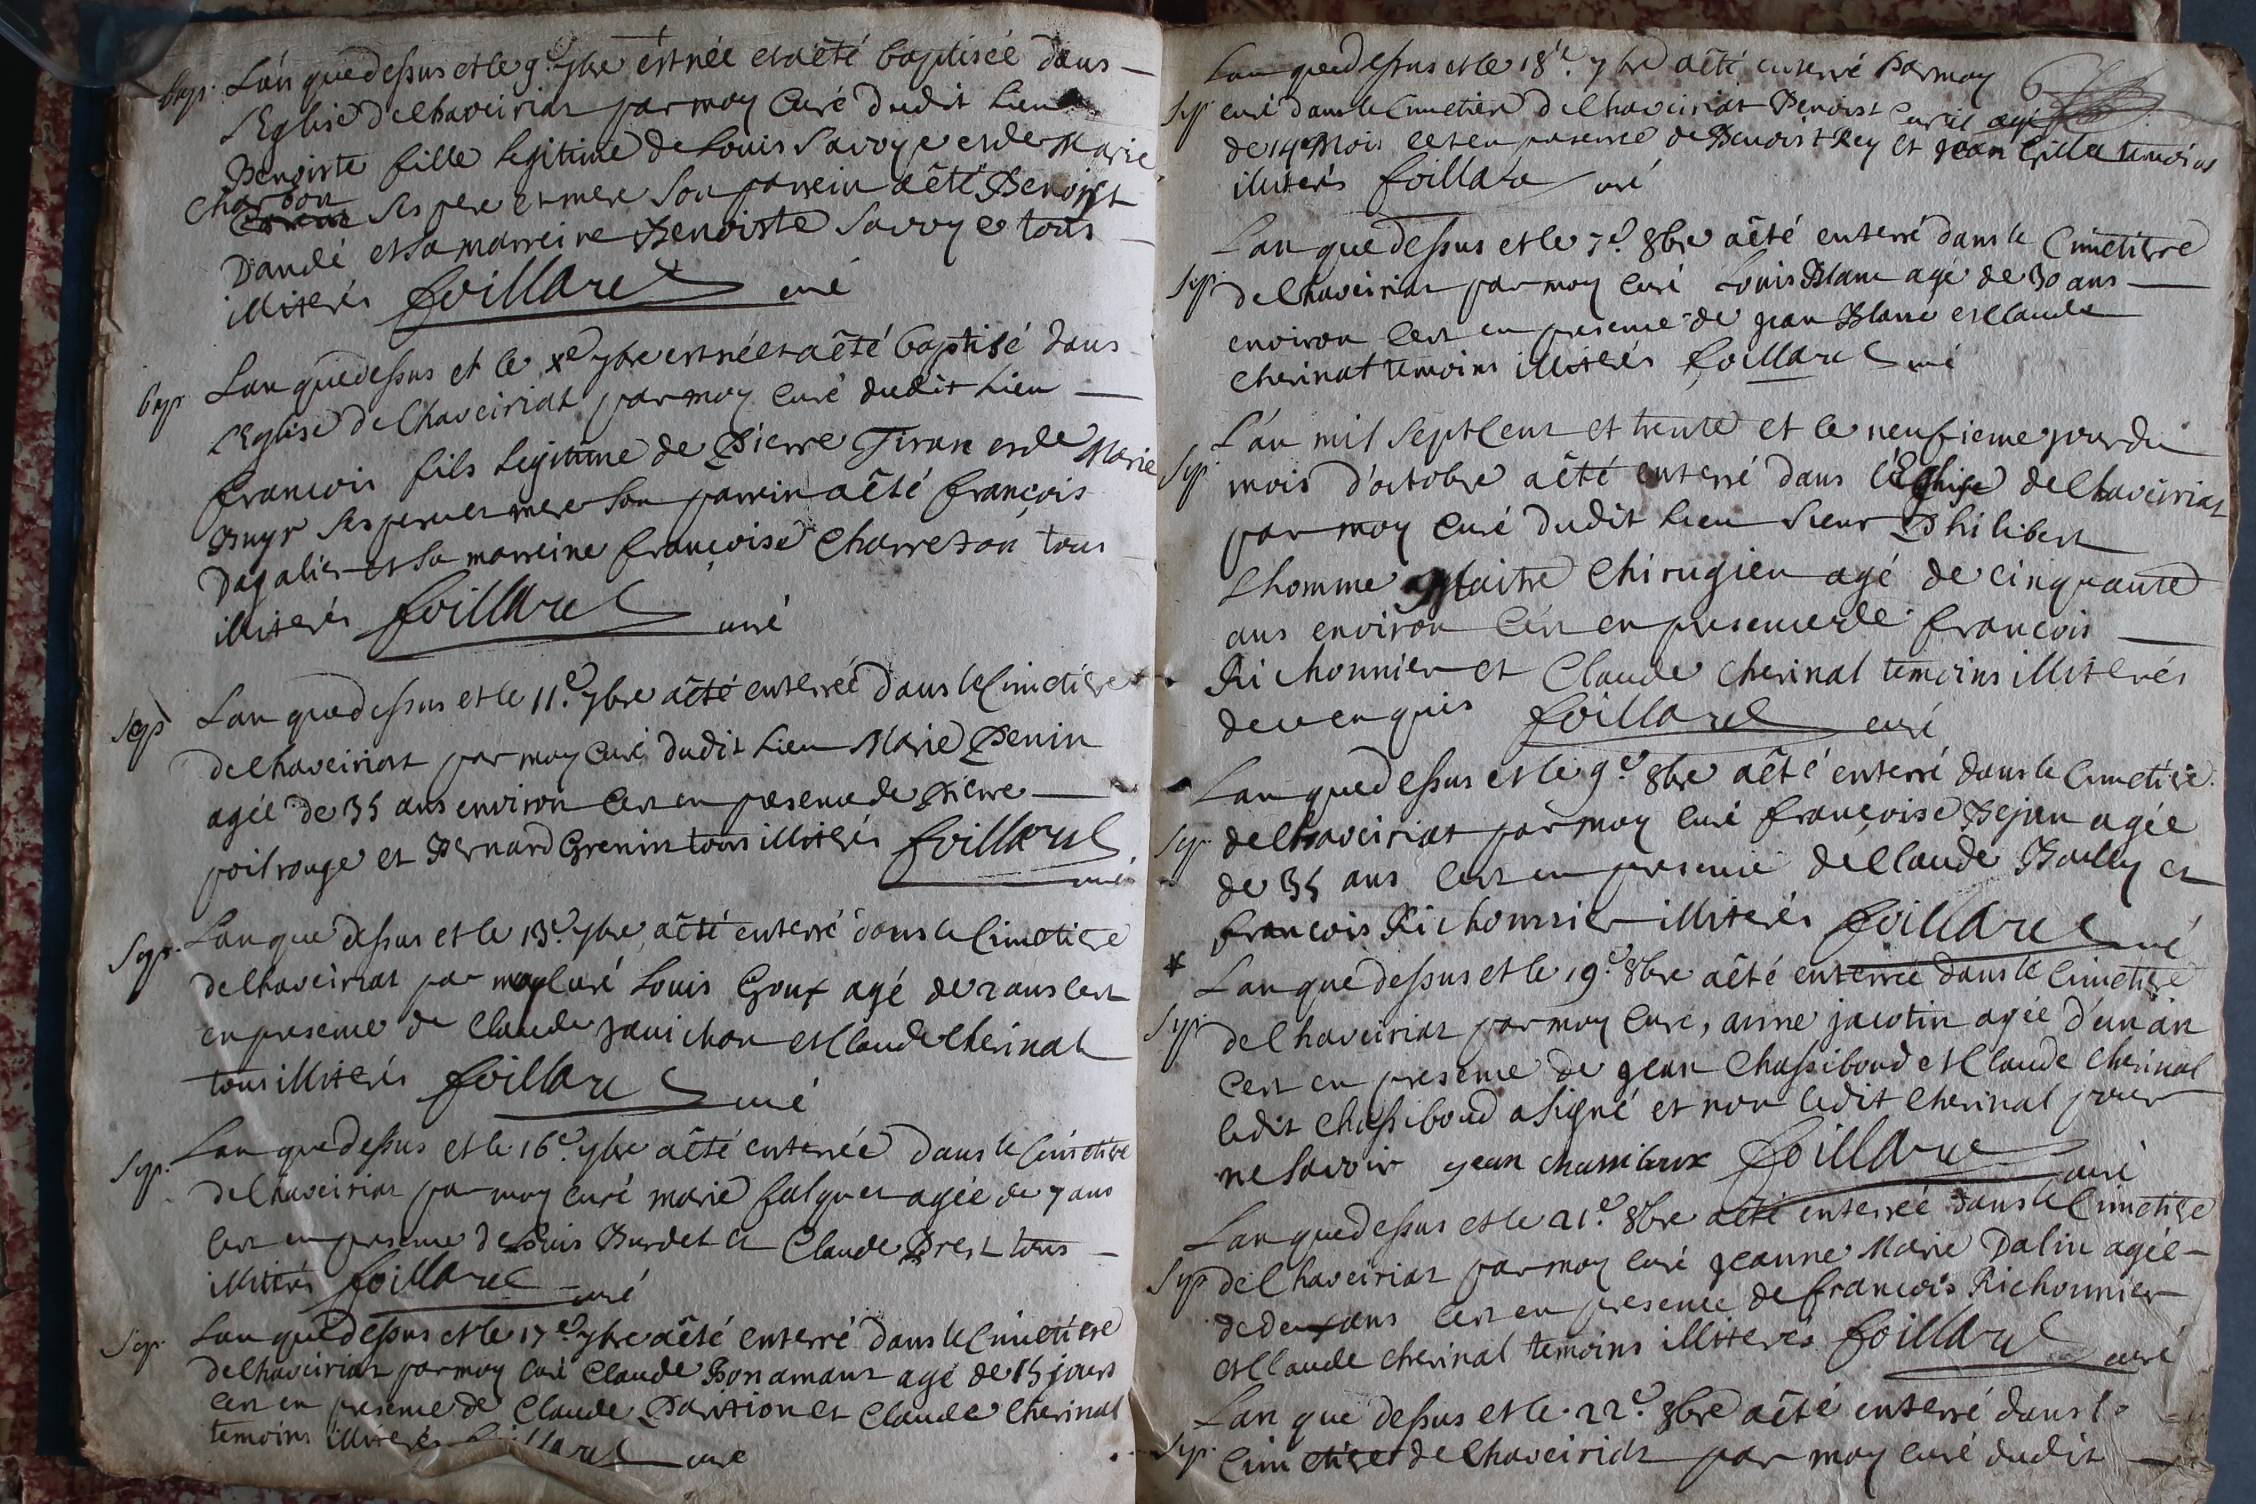 bap. L'an que dessus et le 9e 7bre est née et a êté baptisée dans
l'Eglise de Chaveiriat par moy curé dudit lieu
Benoiste fille legitime de Louis Savoye et de Marie
Charbon
ses pere et mere son parrein a êté Benoist
Dandé et sa marreine Benoiste Savoye tous
illiterés foillard curé
bap. L'an que dessus et le xe 7bre est né et a êté baptisé dans
l'Eglise de Chaveiriat par moy curé dudit lieu
françois fils legitime de Pierre Tiran et de Marie
Buyr ses pere et mere son parrein a êté françois
Dagalier et sa marreine françoise Charreton tous
illiterés foillard curé
Sep. L'an que dessus et le 11e 7bre a êté enterrée dans le Cimetiere
de Chaveiriat par moy curé dudit lieu Marie Penin
agée de 35 ans environ c'est en presence de Pierre
poilrouge et Bernard Grenin tous illiterés foillard
curé
Sep. L'an que dessus et le 13e 7bre a êté enterré dans le Cimetiere
de Chaveiriat par moy curé Louis Goux agé de 2 ans c'est
en presence de Claude Janichon et Claude Cherinal
tous illiterés foillard curé
Sep. L'an que dessus et le 16e 7bre a êté enterrée dans le Cimetiere
de Chaveiriat par moy curé marie falquet agée de 7 ans
c'est en presence de Louis Burdet et Claude Brest tous
illiterés foillard curé
Sep. L'an que dessus et le 17e 7bre a êté enterré dans le Cimetiere
de Chaveiriat par moy curé Claude Bonamant agé de 15 jours
c'est en presence de Claude Parition et Claude Cherinal
temoins illiterés foillard curé
L'an que dessus et le 18e 7bre a êté enterré par moy 6
Sep. curé dans le Cimetiere de Chaveiriat Benoist agé
de 14 mois c'est en presence de Benoist Rey et jean temoins
illiterés foillard curé
L'an que dessus et le 7e 8bre a êté enterré dans le Cimetiere
Sep. de Chaveiriat par moy curé Louis Blanc agé de 30 ans
environ c'est en presence de jean Blanc et Claude
Cherinal temoins illiterés foillard curé
L'an mil sept cent et trente et le neufieme jour du
Sep. mois d'octobre a êté enterré dans l'Eglise de Chaveiriat
par moy curé dudit lieu sieur Philibert
Lhomme Maitre Chirugien agé de cinquante
ans environ c'est en presence de françois
Richonnier et Claude Cherinal temoins illiterés
de ce enquis foillard curé
L'an que dessus et le 9e 8bre a êté enterré dans le Cimetiere
Sep. de Chaveiriat par moy curé françoise Bejan agée
de 35 ans c'est en presence de Claude Bailly et
françois Richonnier illiterés foillard curé
* L'an que dessus et le 19e 8bre a êté enterrée dans le Cimetiere
Sep. de Chaveiriat par moy curé, anne jacotin agée d'un an
c'est en presence de jean Chassiboud et Claude Cherinal
ledit Chassiboud a signé et non ledit Cherinal pour
ne savoir jean chassiboux foillard curé
L'an que dessus et le 21e 8bre a êté enterrée dans le Cimetiere
Sep. de Chaveiriat par moy curé jeanne Marie Dalin agée
de deux ans c'est en presence de françois Richonnier
et Claude Cherinal temoins illiterés foillard curé
L'an que dessus et le 22e 8bre a êté enterré dans le
Sep. Cimetiere de Chaveiriat par moy curé dudit